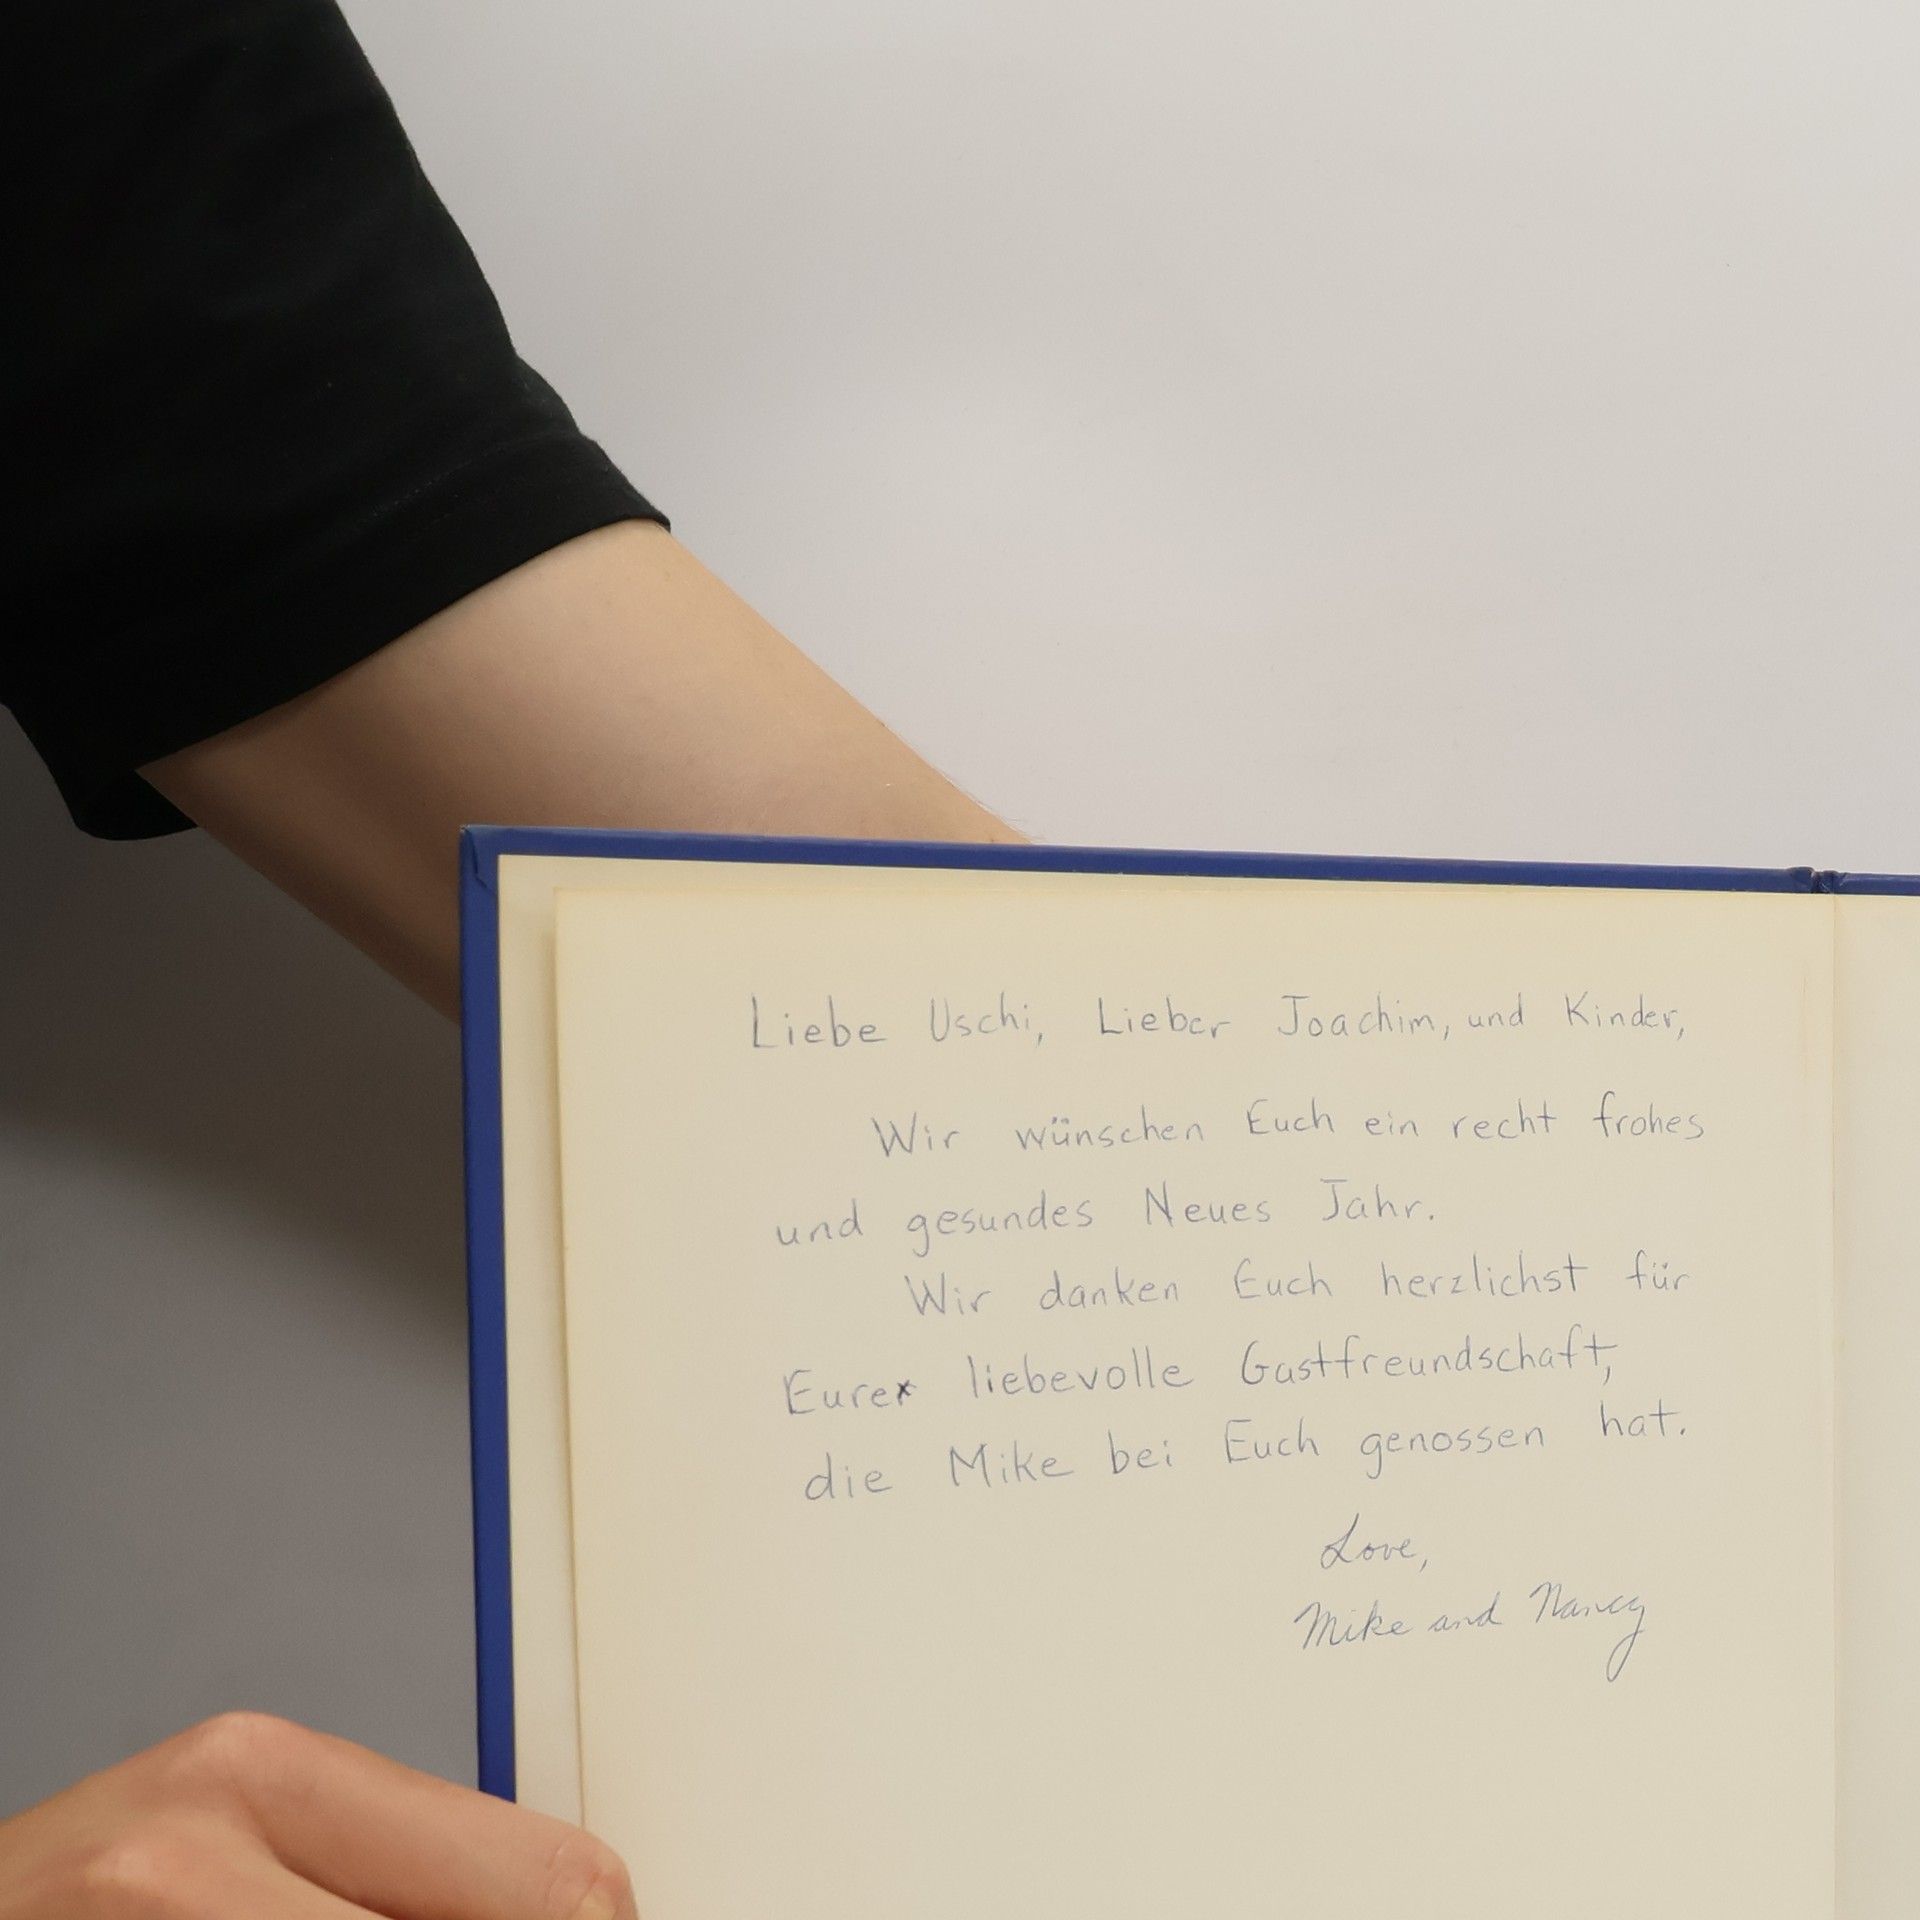 Liebe Uschi, Lieber Joachim, und Kinder,
Wir wünschen Euch ein recht frohes
und gesundes Neues Jahr.
Wir danken Euch herzlichst für
Eure liebevolle Gastfreundschaft,
die Mike bei Euch genossen hat.
Love,
Mike and Nancy